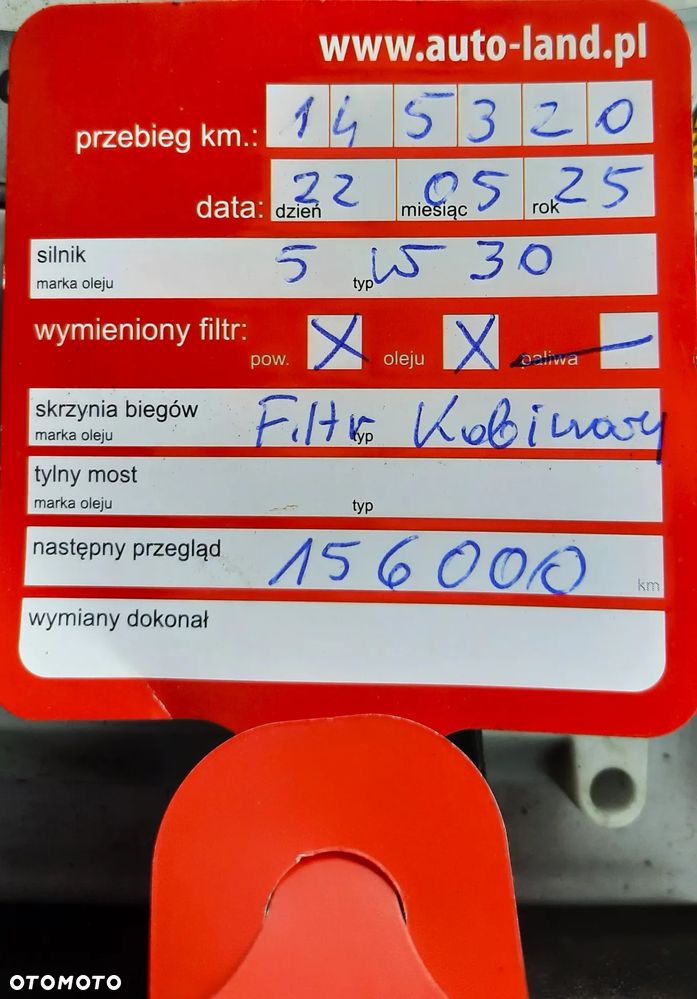 www.auto-land.pl
przebieg km.: 145320
data: dzień 22 miesiąc 05 rok 25
silnik 5 W 30
marka oleju typ
wymieniony filtr:
pow. X oleju X paliwa —
skrzynia biegów Filtr Kabinowy
marka oleju typ
tylny most
marka oleju typ
następny przegląd 156000 km
wymiany dokonał
OTOMOTO